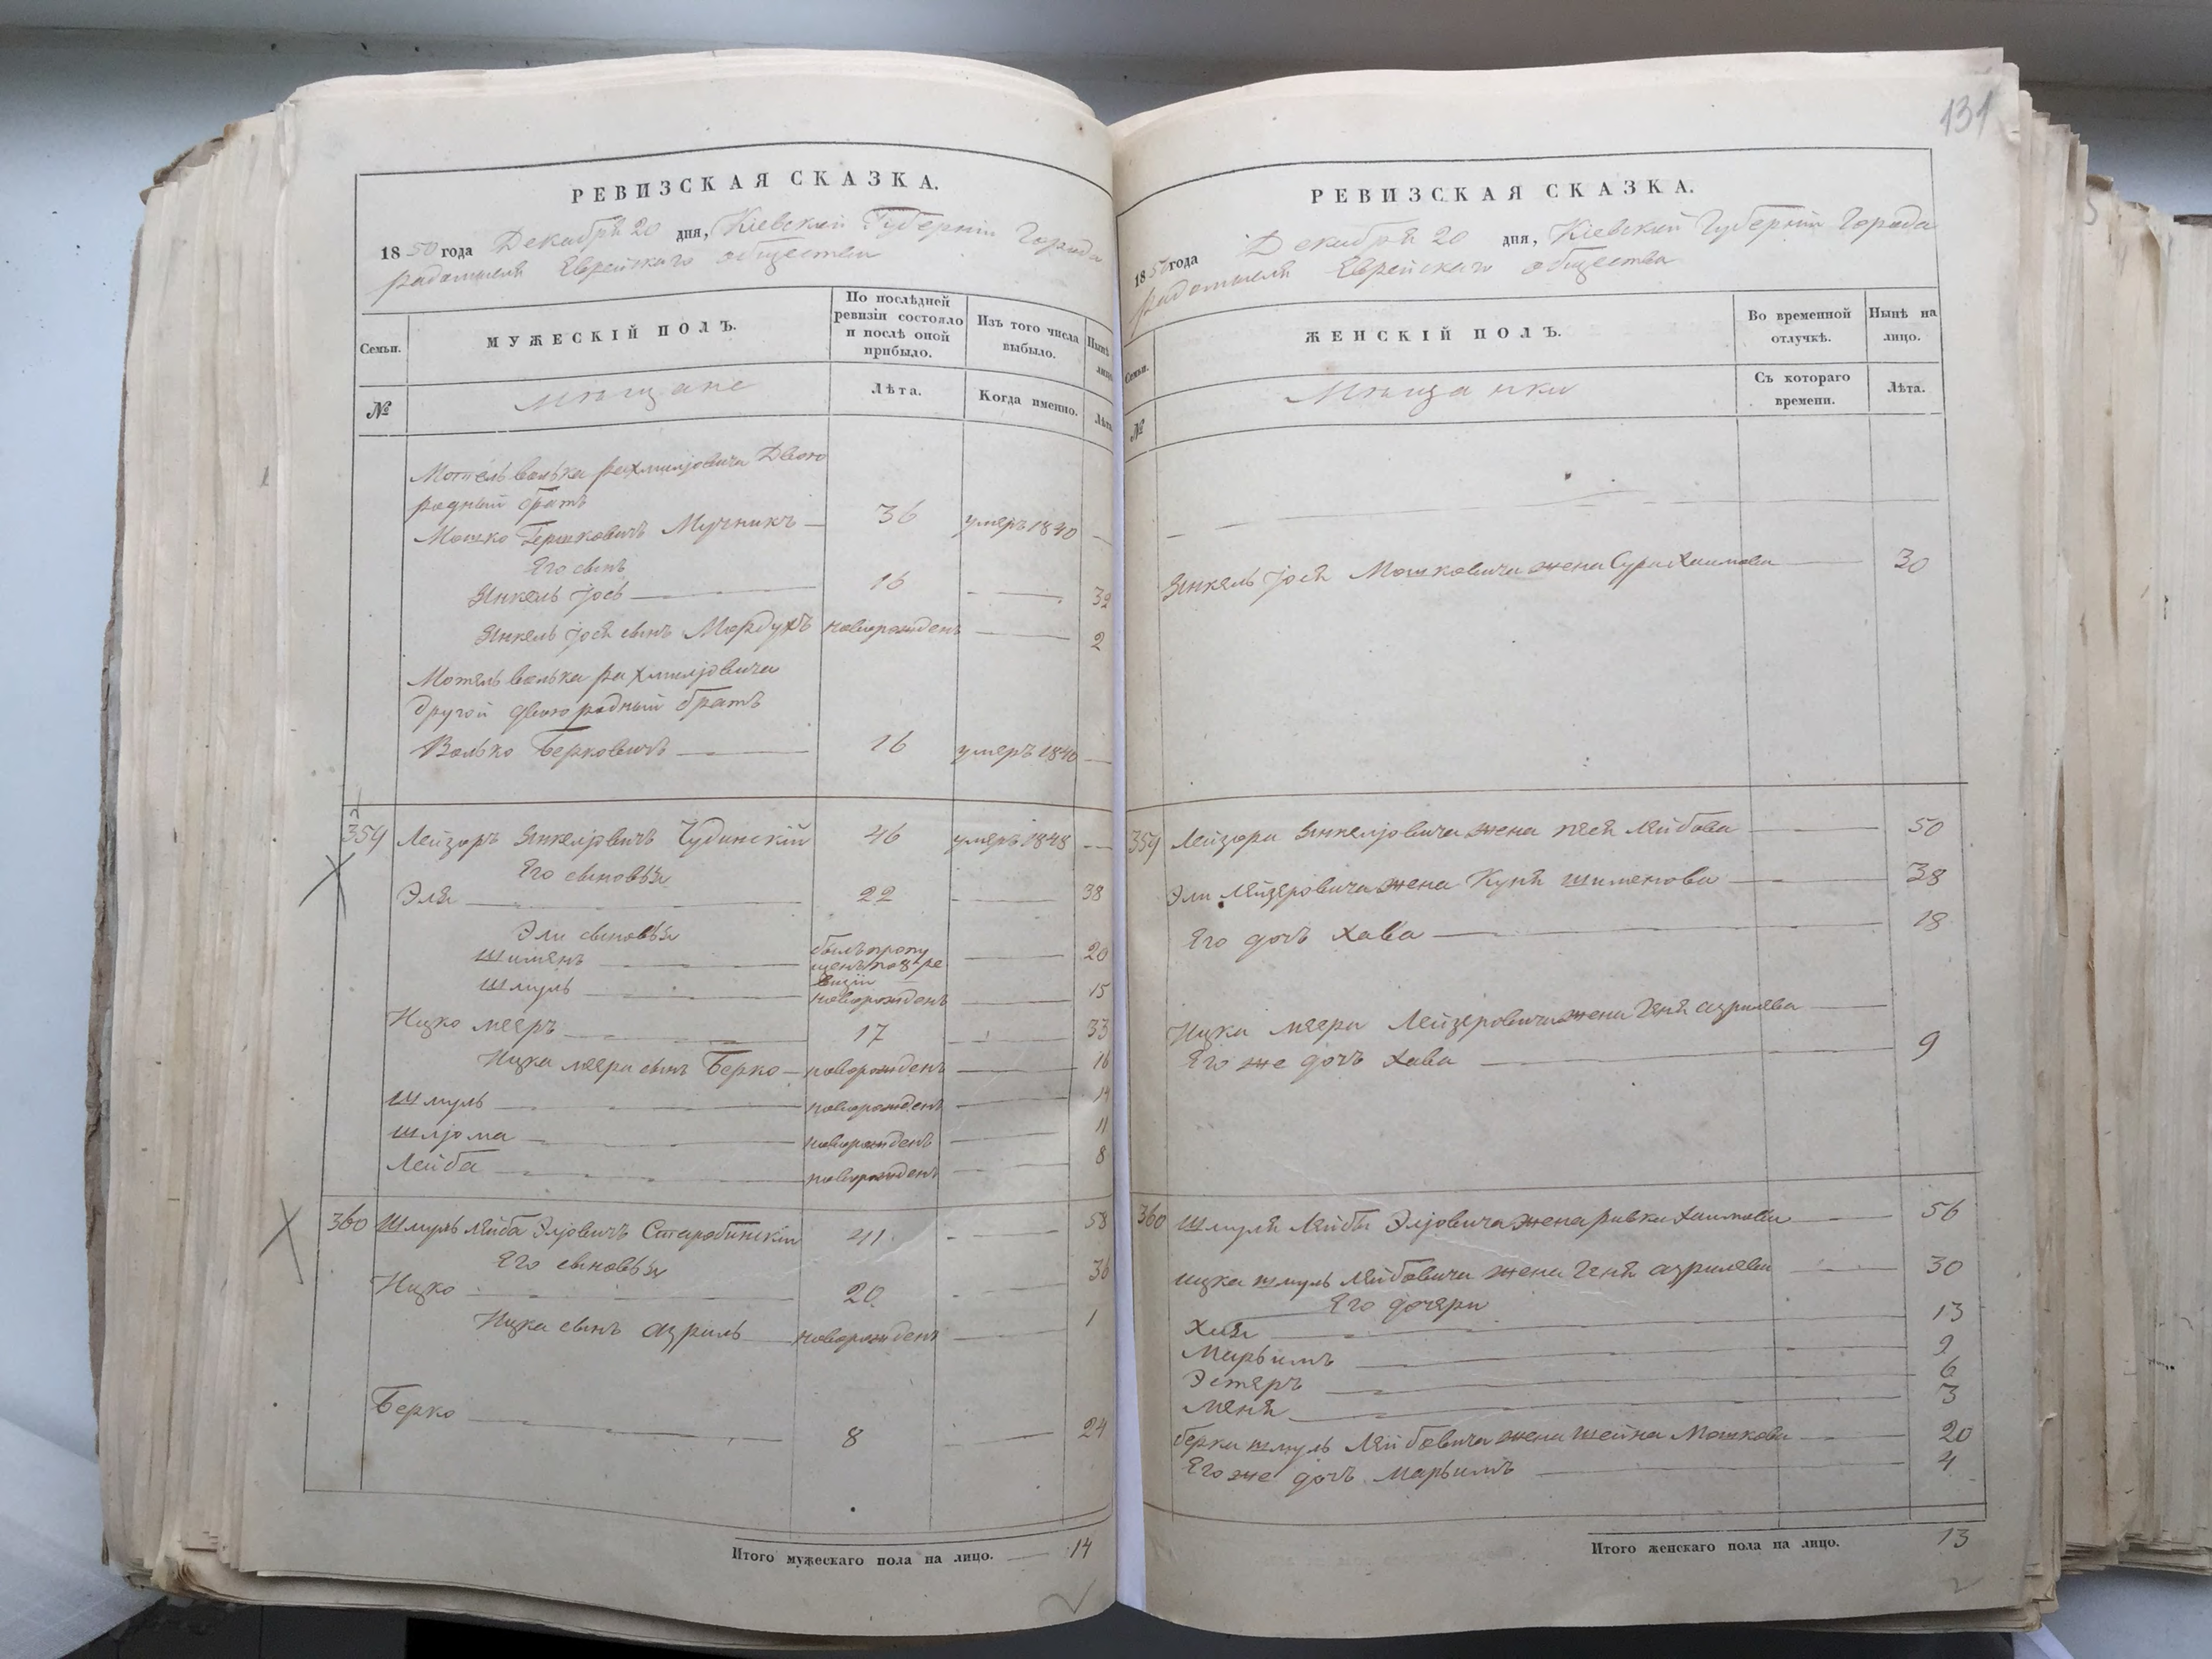 РЕВИЗСКАЯ СКАЗКА.
1850 года Декабря 20 дня, Кіевской Губерніи Города
Радомысля Еврейскаго общества
Семьи.
МУЖЕСКІЙ ПОЛЪ.
По послѣдней ревизіи состояло и послѣ оной прибыло.
Изъ того числа выбыло.
Нынѣ лицо
№
Мѣщане
Лѣта.
Когда именно.
Лѣта
Мотель Волька Рахмиліовича Двою
родный братъ
Мошко Гершковичъ Мучникъ — 36 умеръ 1840 —
Его сынъ
Янкель Іось — 16 — 32
Янкель Іося сынъ Мордухъ новорожденъ — 2
Мотель Волька Рахмиліовича
другой двоюродный братъ
Волько Берковичъ — 16 умеръ 1840 —
2
359 Лейзоръ Янкеліовичъ Чудинскій 46 умеръ 1848 —
Его сыновья
Эля — 22 — 38
Эли сыновья
Шимянъ — былъ пропу
щенъ по 8й ре
визіи — 20
Шмуль — новорожденъ — 15
Ицко Мееръ — 17 — 33
Ицка Меера сынъ Берко — новорожденъ — 16
Шмуль — новорожденъ — 14
Шліома — новорожденъ — 11
Лейба — новорожденъ — 8
360 Шмуль Лейба Эліовичъ Старобинскій 41 — 58
Его сыновья
Ицко — 20 — 36
Ицка сынъ Азриль — новорожденъ — 1
Берко — 8 — 24
Итого мужескаго пола на лицо. — 14
131
РЕВИЗСКАЯ СКАЗКА.
1850 года Декабря 20 дня, Кіевской Губерніи Города
Радомысля Еврейскаго общества
Семьи.
ЖЕНСКІЙ ПОЛЪ.
Во временной отлучкѣ.
Нынѣ на лицо.
№
Мѣщанки
Съ котораго времени.
Лѣта.
Янкель Іося Мошковича жена Сура Хаимова — 30
359 Лейзора Янкеліовича жена Песя Лейбова — 50
Эли Лейзеровича жена Куня Шименова — 38
Его дочь Хава — 18
Ицка Меера Лейзеровича жена Геня Азрилева —
Его же дочь Хава — 9
360 Шмуля Лейбы Эліовича жена Ривка Хаимова — 56
Ицка Шмуль Лейбовича жена Геня Азрилева — 30
Его дочери
Хая — 13
Марьимъ — 9
Эстеръ — 6
Меня — 3
Берка Шмуль Лейбовича жена Шейна Мошкова — 20
Его же дочь Марьимъ — 4
Итого женскаго пола на лицо. 13